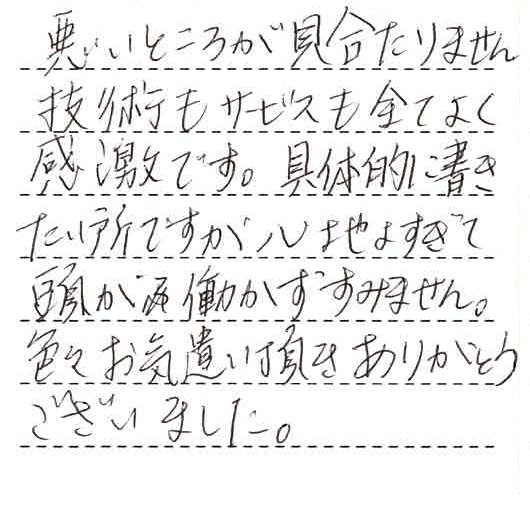 悪いところが見合たりません
技術もサービスも全てよく
感激です。具体的に書き
たい所ですが心地よすぎて
頭が働かずすみません。
色々お気遣い頂きありがとう
ございました。